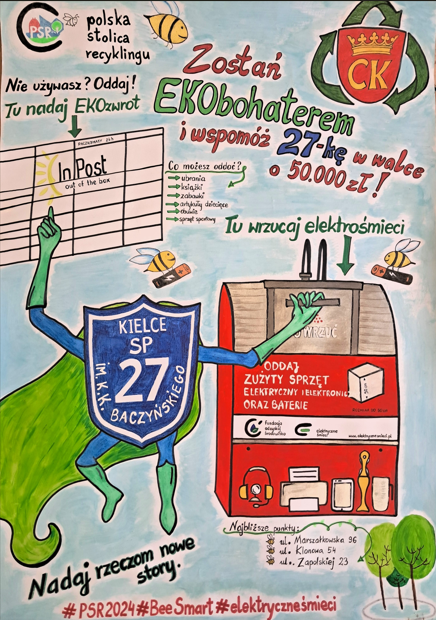 PSR
polska
stolica
recyklingu
CK
Zostań
EKObohaterem
i wspomóż 27-kę w walce
o 50.000 zł!
Nie używasz? Oddaj!
Tu nadaj EKOzwrot
InPost
out of the box
Co możesz oddać?
ubrania
książki
zabawki
artykuły dziecięce
obuwie
sprzęt sportowy
Tu wrzucaj elektrośmieci
WRZUĆ
KIELCE
SP
27
IM. K.K. BACZYŃSKIEGO
ODDAJ
ZUŻYTY SPRZĘT
ELEKTRYCZNY I ELEKTRONICZNY
ORAZ BATERIE
Fundacja
odzyskaj
środowisko
elektryczne
śmieci
Najbliższe punkty:
ul. Marszałkowska 96
ul. Klonowa 54
ul. Zapolskiej 23
Nadaj rzeczom nowe
story.
#PSR2024#BeeSmart#elektryczneśmieci